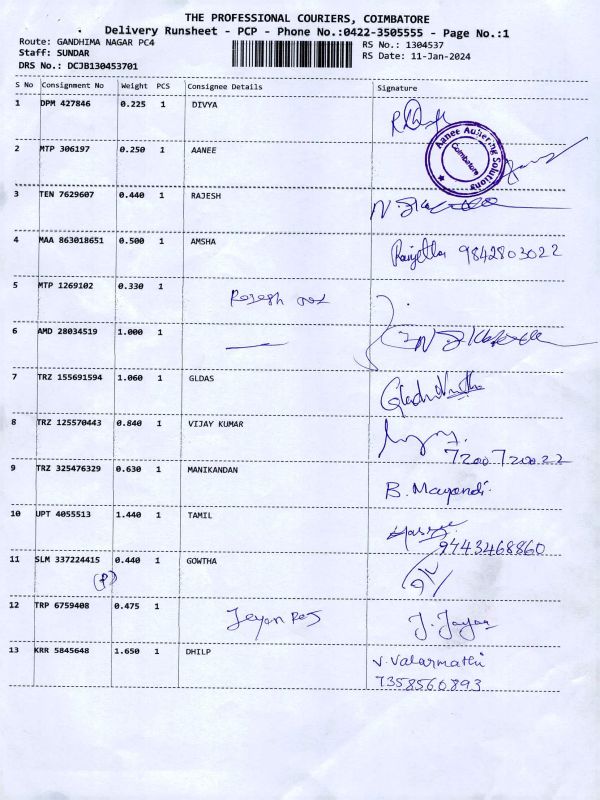 THE PROFESSIONAL COURIERS, COIMBATORE
Delivery Runsheet - PCP - Phone No.:0422-3505555 - Page No.:1
Route: GANDHIMA NAGAR PC4 RS No.: 1304537
Staff: SUNDAR RS Date: 11-Jan-2024
DRS No.: DCJB130453701
S No Consignment No Weight PCS Consignee Details Signature
1 DPM 427846 0.225 1 DIVYA
2 MTP 306197 0.250 1 AANEE
Coimbatore
3 TEN 7629607 0.440 1 RAJESH
4 MAA 863018651 0.500 1 AMSHA 9842803022
5 MTP 1269102 0.330 1
6 AMD 28034519 1.000 1
7 TRZ 155691594 1.060 1 GLDAS
8 TRZ 125570443 0.840 1 VIJAY KUMAR
7200720022
9 TRZ 325476329 0.630 1 MANIKANDAN B. Mayandi
10 UPT 4055513 1.440 1 TAMIL
9443468860
11 SLM 337224415 0.440 1 GOWTHA
(P)
12 TRP 6759408 0.475 1
13 KRR 5845648 1.650 1 DHILP V. Valarmathi
7358560893